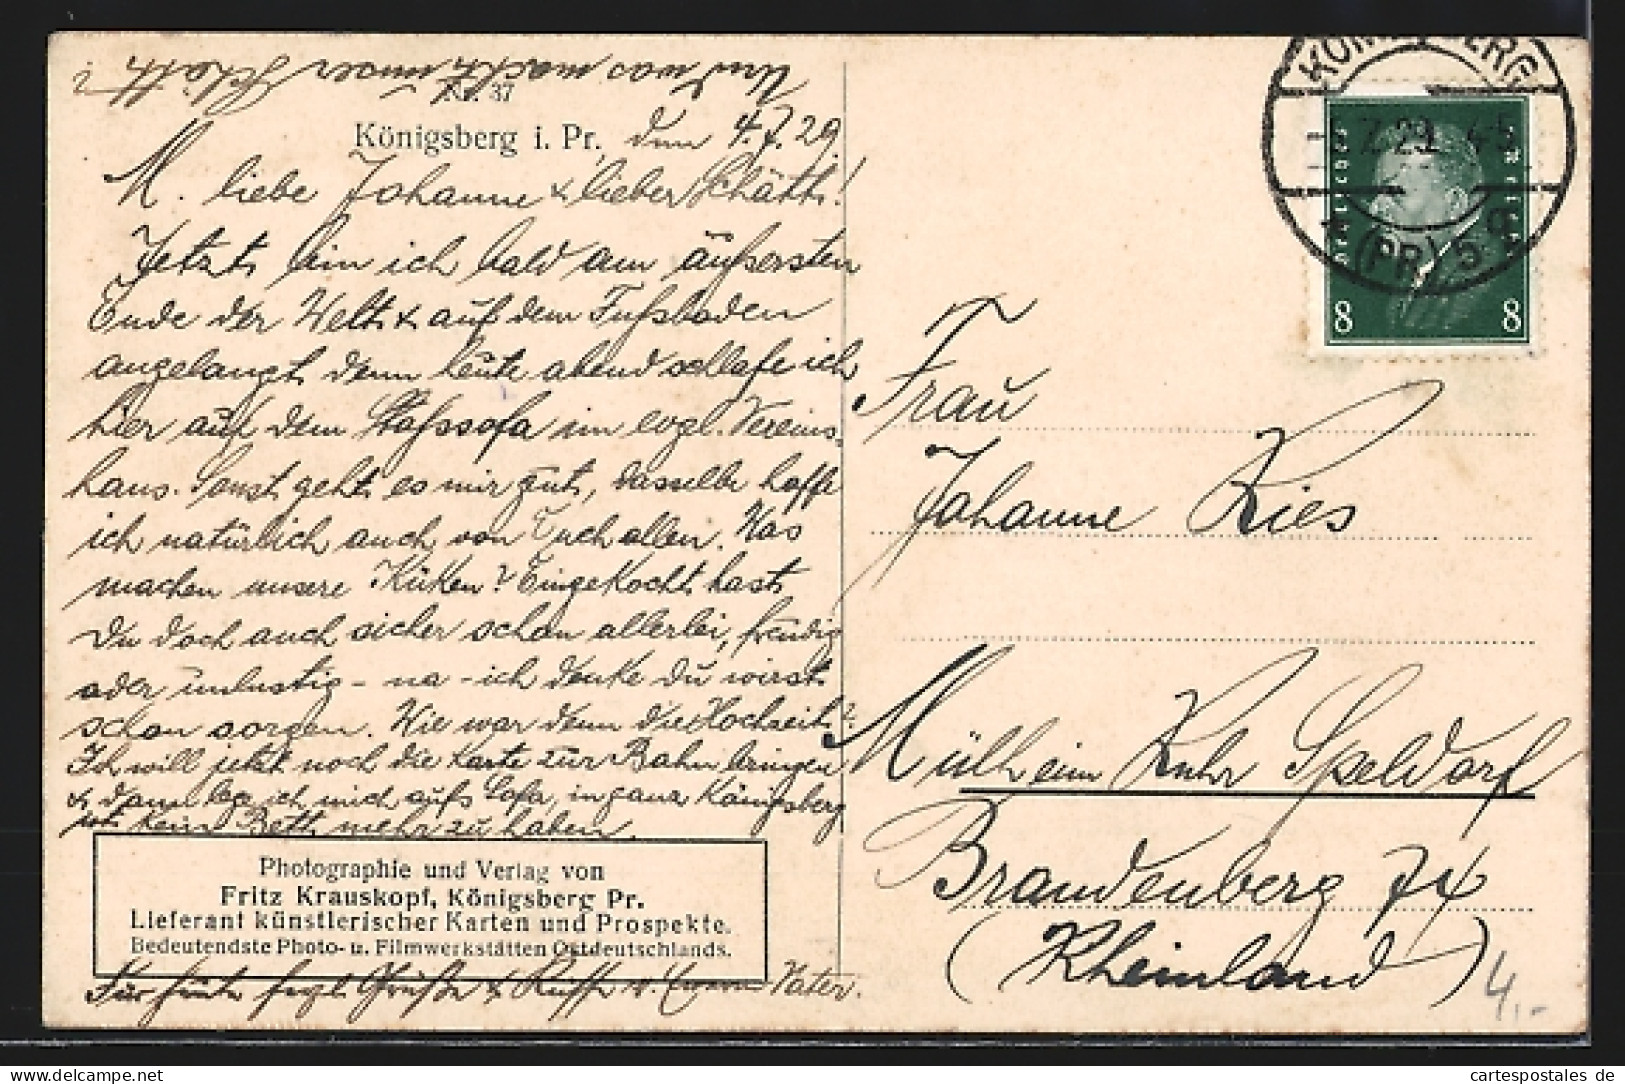 Und was macht unser Schätti
Nr. 37
Königsberg i. Pr., den 4.7.29
M. liebe Johanne & lieber Schätti!
Jetzt bin ich bald am äußersten
Ende der Welt & auf dem Fußboden
angelangt, denn heute abend schlafe ich
hier auf dem Schlafsofa im evgl. Vereins-
haus. Sonst geht es mir gut, dasselbe hoffe
ich natürlich auch von Euch allen. Was
machen unsere Küken? Eingekocht hast
Du doch auch sicher schon allerlei, freudig
oder unlustig – na – ich denke du wirst
schon sorgen. Wie war denn die Hochzeit?
Ich will jetzt noch die Karte zur Bahn bringen
& dann lege ich mich aufs Sofa, in ganz Königsberg
ist kein Bett mehr zu haben.
Photographie und Verlag von
Fritz Krauskopf, Königsberg Pr.
Lieferant künstlerischer Karten und Prospekte.
Bedeutendste Photo- u. Filmwerkstätten Ostdeutschlands.
Für heute Grüße & Küsse v. Eurem Vater.
KÖNIGSBERG
7.29 4-5
* (PR) 5
DEUTSCHES REICH
8 8
Frau
Johanne Ries
Mülheim Ruhr Speldorf
Brandenberg 74
(Rheinland)
4,-
cartespostales de